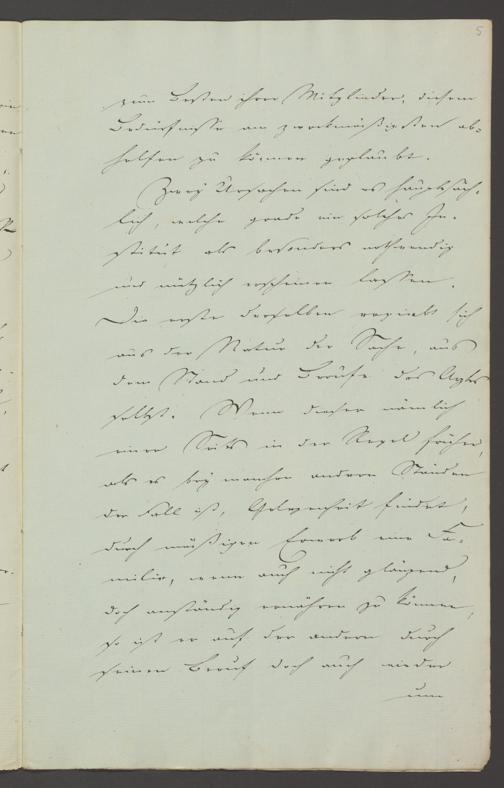 5
zum Besten ihrer Mitglieder, diesem
Bedürfnisse am zweckmäßigsten ab-
helfen zu können geglaubt.
Zwey Ursachen sind es hauptsäch-
lich, welche grade ein solches In-
stitut als besonders nothwendig
und nützlich erscheinen lassen.
Die erste derselben ergiebt sich
aus der Natur der Sache, aus
dem Stand und Berufe des Arztes
selbst. Wenn dieser nämlich
einer Seits in der Regel früher,
als es bey manchen andern Ständen
der Fall ist, Gelegenheit findet,
durch mäßigen Erwerb eine Fa-
milie, wenn auch nicht glänzend,
doch anständig ernähren zu können,
so ist er auf der andern durch
seinen Beruf doch auch wieder